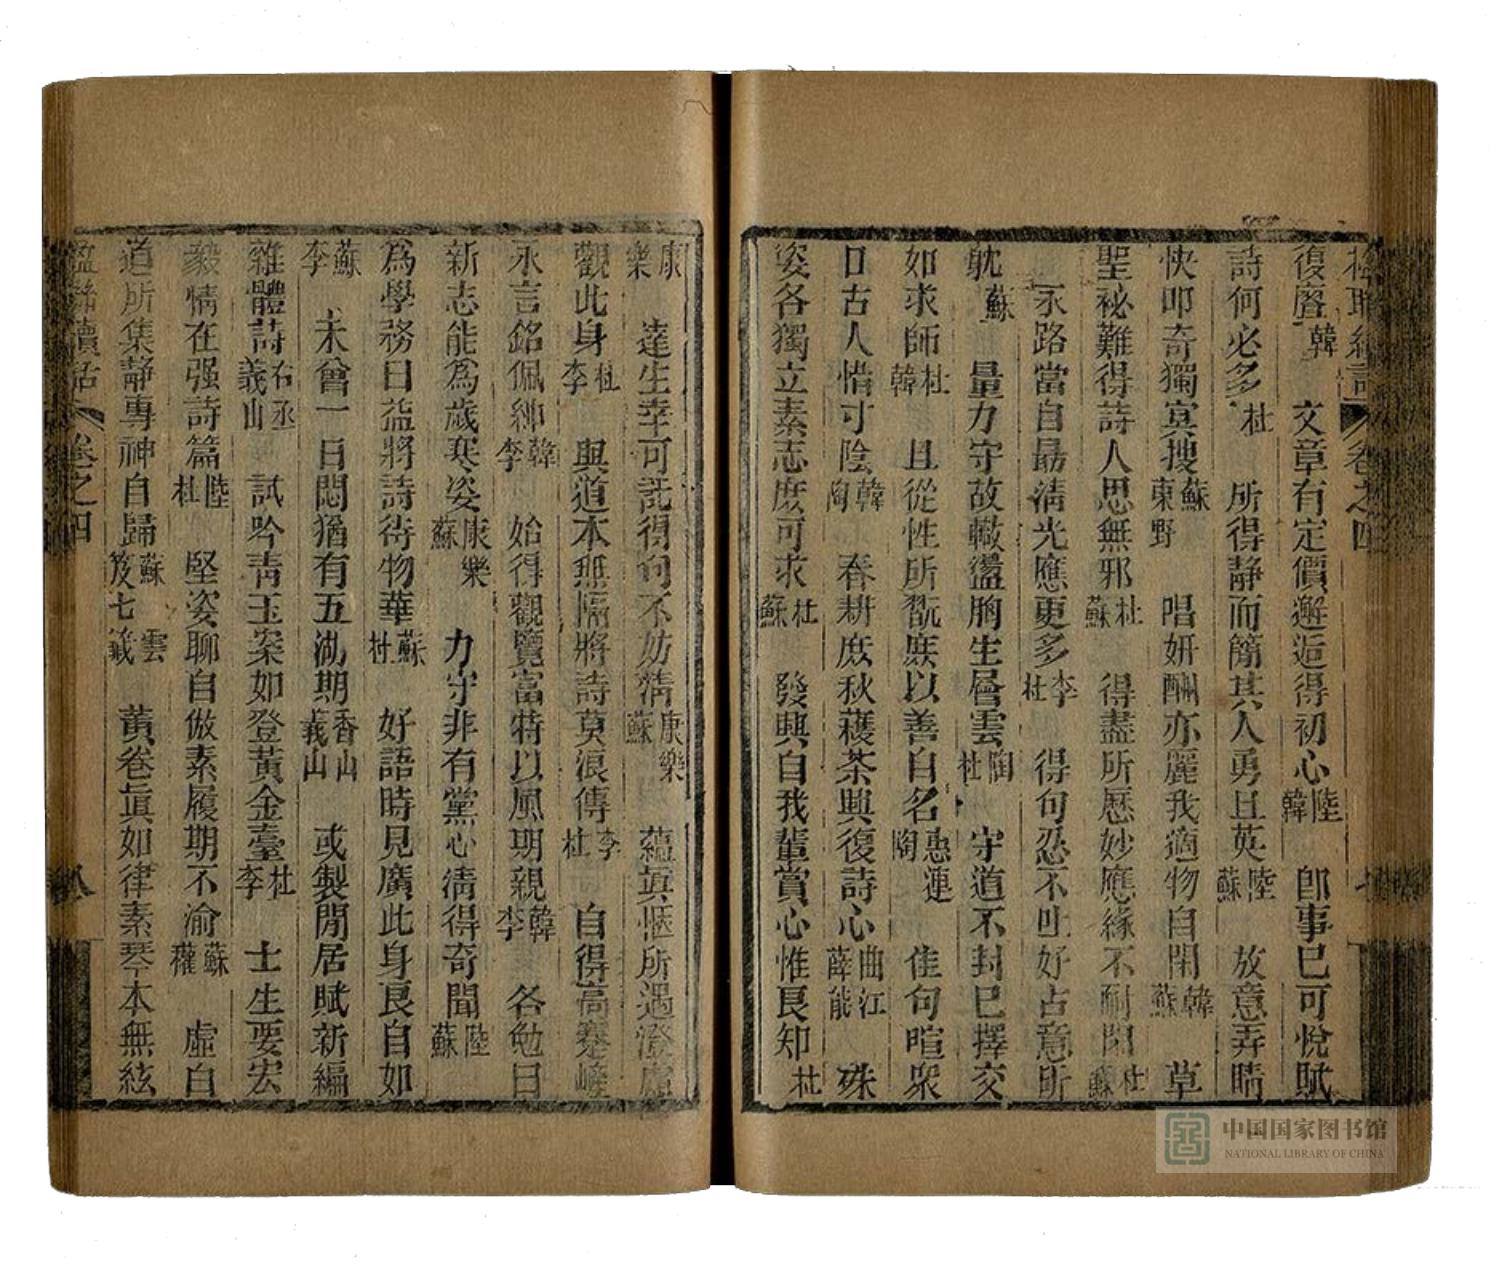 楹聯續話 卷之四 七
復磨韓 文章有定價邂逅得初心陸韓 卽事已可悅賦
詩何必多杜 所得靜而簡其人勇且英陸蘇 放意弄晴
快叩奇獨冥搜蘇東野 唱妍酬亦麗我適物自閑韓蘇 草
聖祕難得詩人思無邪杜蘇 得盡所歷妙應緣不耐閑杜蘇
永路當自勗淸光應更多李杜 得句忍不吐好古意所
耽蘇 量力守故轍盪胸生層雲陶杜 守道不封已擇交
如求師杜韓 且從性所翫庶以善自名惠連陶 佳句喧衆
口古人惜寸陰韓陶 春耕庶秋穫茶興復詩心曲江薛能 殊
姿各獨立素志庶可求杜蘇 發興自我輩賞心惟良知杜
康樂 達生幸可託得句不妨淸康樂蘇 蘊眞愜所遇澄慮
觀此身杜李 與道本無隔將詩莫浪傳李杜 自得高蹇嵯
永言銘佩紳韓李 始得觀覽富特以風期親韓李 各勉日
新志能爲歲寒姿康樂蘇 力守非有黨心淸得奇聞陸蘇
爲學務日益將詩待物華蘇杜 好語時見廣此身良自如
蘇李 未曾一日悶猶有五湖期香山義山 或製閒居賦新編
雜體詩右丞義山 試吟靑玉案如登黃金臺杜李 士生要宏
毅情在强詩篇陸杜 堅姿聊自儆素履期不渝蘇權 虛白
道所集靜專神自歸蘇雲笈七籤 黃卷眞如律素琴本無絃
楹聯續話 卷之四 八
中国国家图书馆
NATIONAL LIBRARY OF CHINA